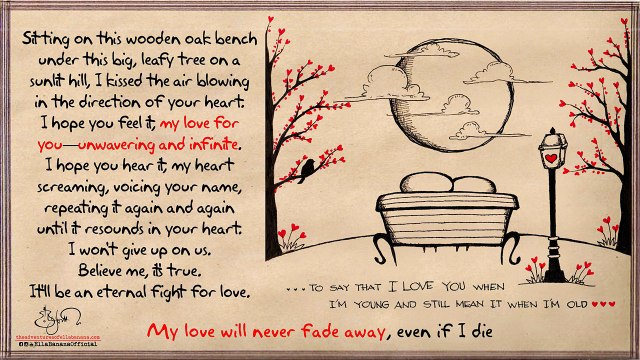 Sitting on this wooden oak bench
under this big, leafy tree on a
sunlit hill, I kissed the air blowing
in the direction of your heart.
I hope you feel it, my love for
you—unwavering and infinite.
I hope you hear it, my heart
screaming, voicing your name,
repeating it again and again
until it resounds in your heart.
I won't give up on us.
Believe me, it's true.
It'll be an eternal fight for love.
theadventuresofellabanana.com
@EllaBananaOfficial
...TO SAY THAT I LOVE YOU WHEN
I'M YOUNG AND STILL MEAN IT WHEN I'M OLD ♥♥♥
My love will never fade away, even if I die